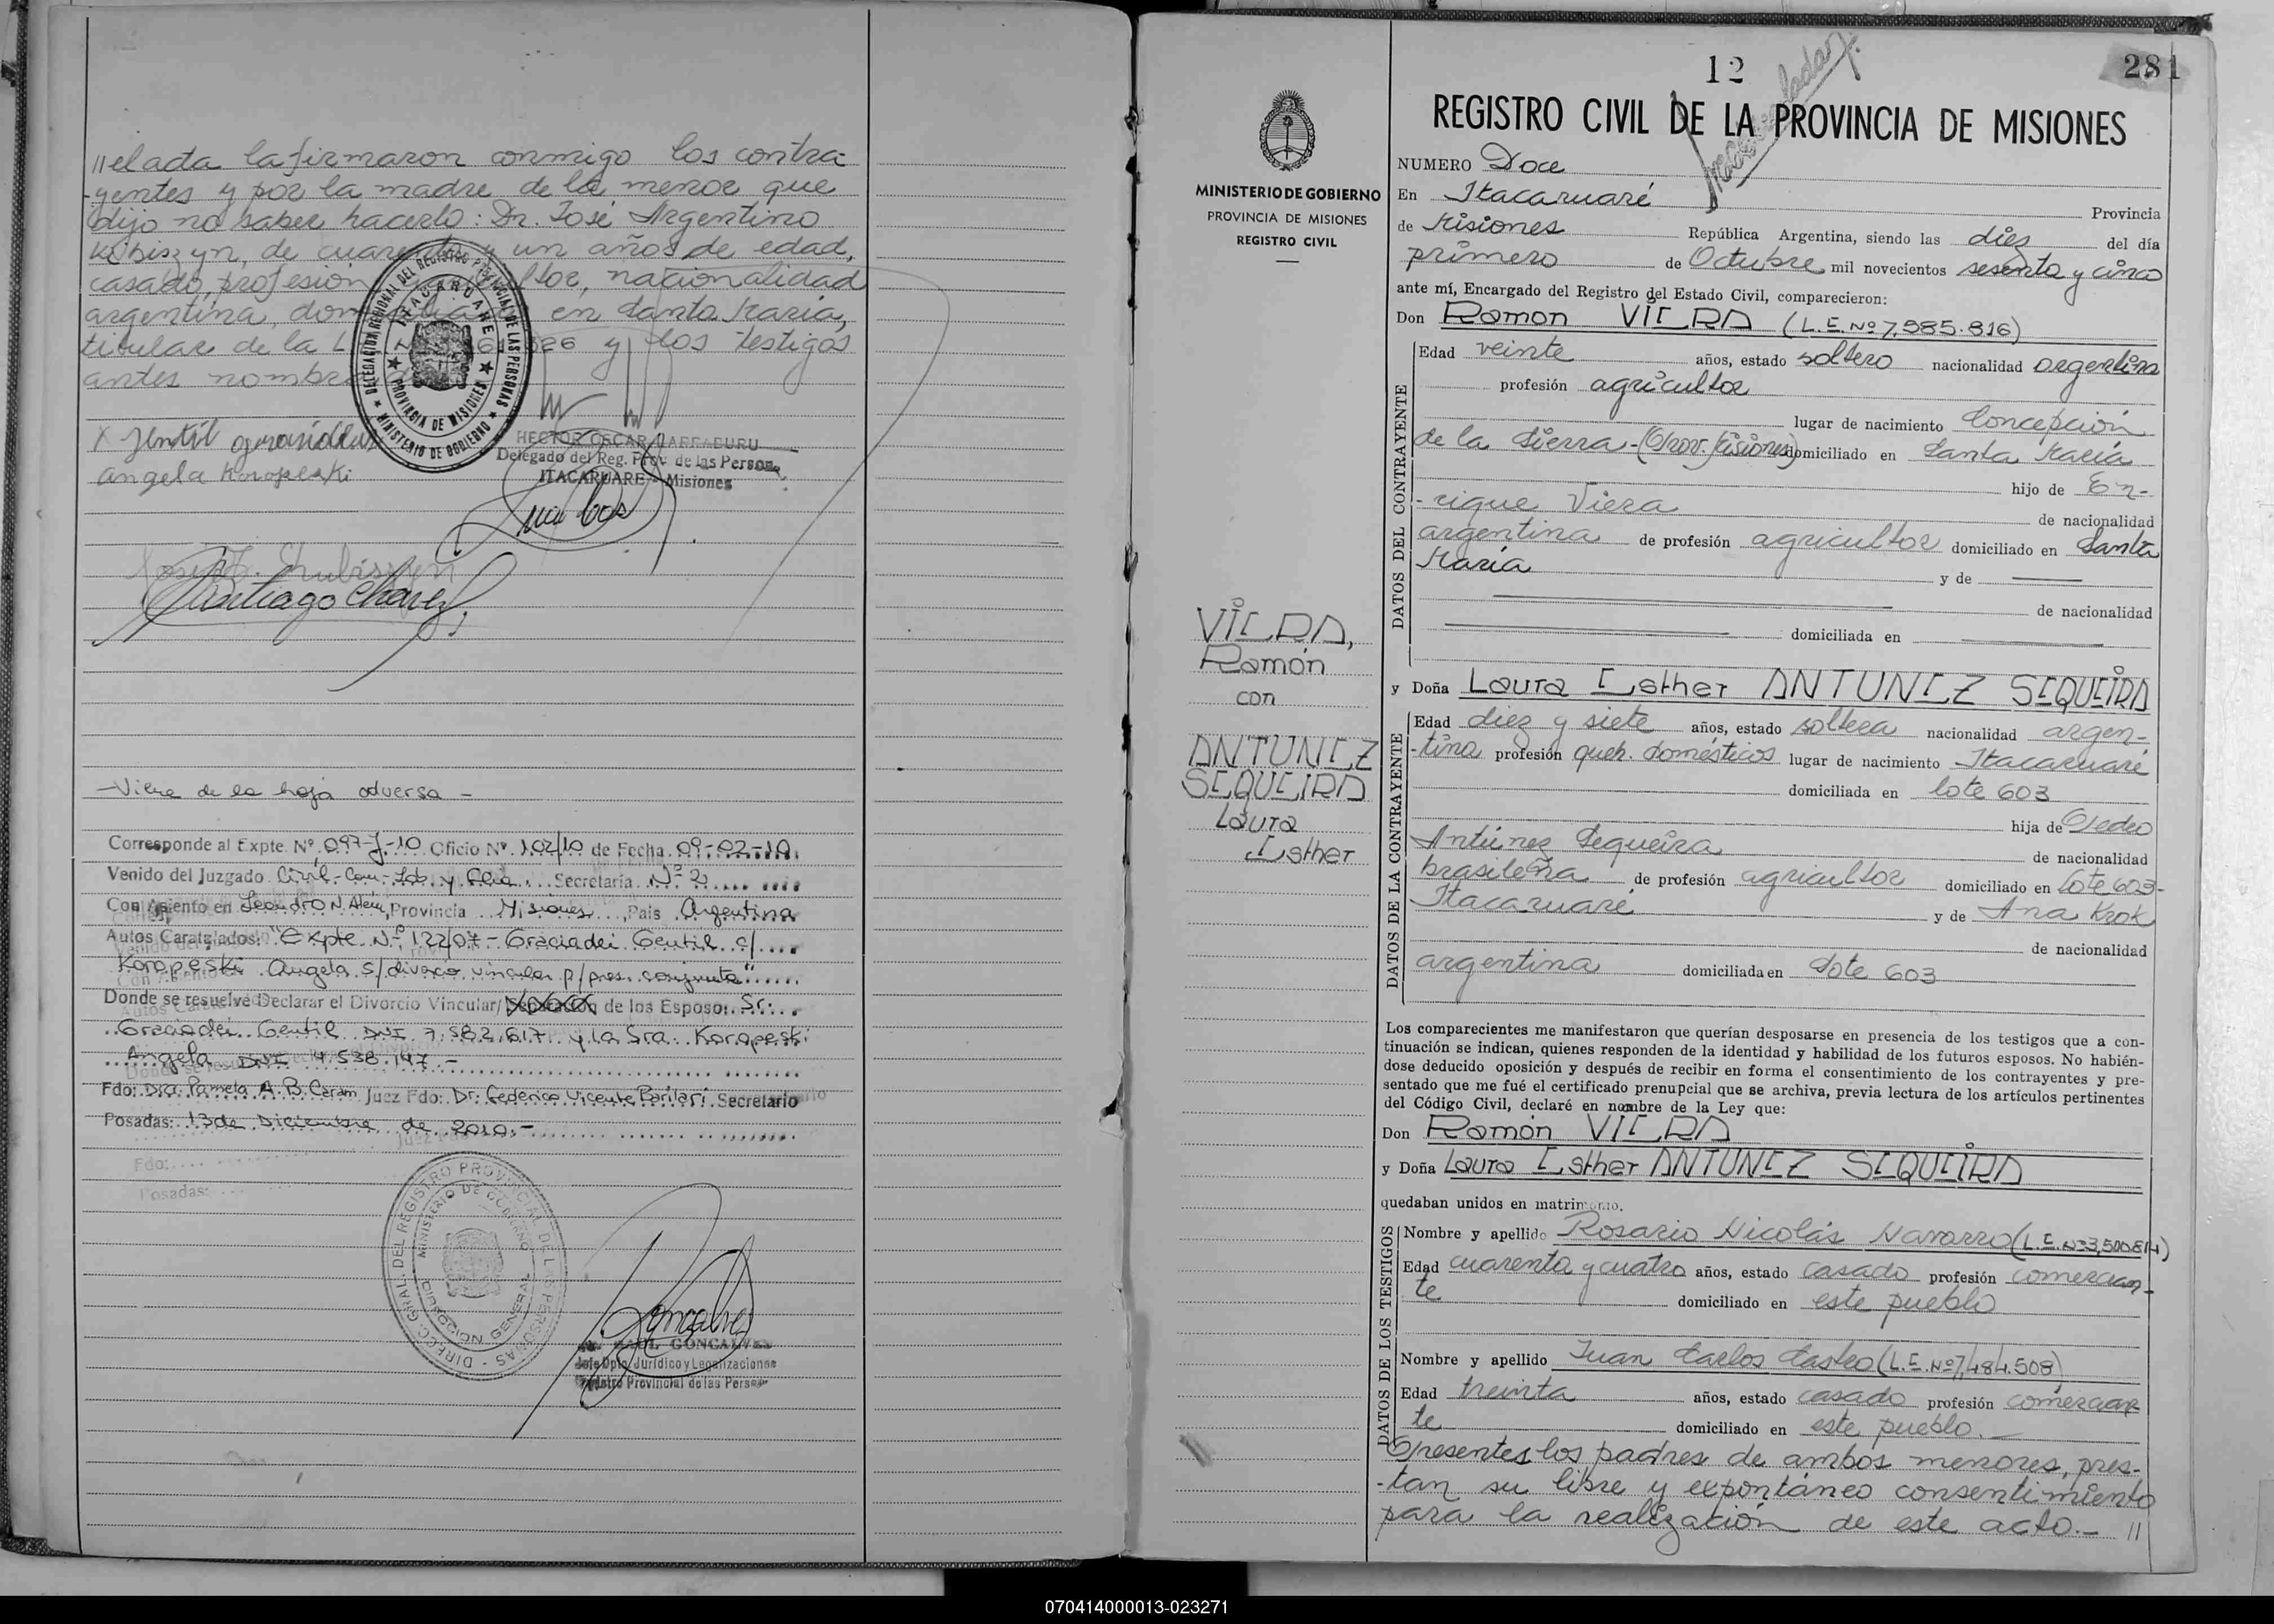 //el acta la firmaron conmigo los contra-
-yentes y por la madre de la menor que
dijo no saber hacerlo: Dn. José Argentino
Kibiszyn, de cuarenta y un años de edad,
casado, profesión agricultor, nacionalidad
argentina, domiciliado en Santa María,
titular de la L y los testigos
antes nombrados
DELEGACION REGIONAL DEL REGISTRO PROVINCIAL DE LAS PERSONAS
ITACARUARE
PROVINCIA DE MISIONES
MINISTERIO DE GOBIERNO
HECTOR OSCAR LARRABURU
Delegado del Reg. Prov. de las Personas
ITACARUARE - Misiones
Angela Koropeski
Santiago Chavez
-Viene de la hoja adversa-
Corresponde al Expte. Nº 097-J-10 Oficio Nº 102/10 de Fecha 09-02-10
Venido del Juzgado Civil-Com-Lab. y Flia. Secretaría Nº 2
Con Asiento en Leandro N. Alem, Provincia Misiones, Pais Argentina
Autos Caratulados: "Expte. Nº 122/07 - Graciadei Gentil c/
Koropeski Angela s/divorcio vincular p/pres. conjunta"
Donde se resuelve Declarar el Divorcio Vincular/ Separación de los Esposo: Sr.
Graciadei Gentil DNI 7.582.617 y la Sra. Koropeski
Angela DNI 4.538.147.-
Fdo: Dra. Pamela A. B. Caram Juez Fdo: Dr. Federico Vicente Parilari Secretario
Posadas: 13 de Diciembre de 2010.-
Fdo:
Posadas:
DIREC. GRAL. DEL REGISTRO PROVINCIAL DE LAS PERSONAS
MINISTERIO DE GOBIERNO
DIRECCION GENERAL
RAUL GONCALVES
Jefe Dpto. Jurídico y Legalizaciones
Registro Provincial de las Personas
12
281
REGISTRO CIVIL DE LA PROVINCIA DE MISIONES
MINISTERIO DE GOBIERNO
PROVINCIA DE MISIONES
REGISTRO CIVIL
VIERA,
Ramón
con
ANTUNEZ
SEQUEIRA
Laura
Esther
NUMERO Doce
En Itacaruaré Provincia
de Misiones República Argentina, siendo las diez del día
primero de Octubre mil novecientos sesenta y cinco
ante mí, Encargado del Registro del Estado Civil, comparecieron:
Don Ramon VIERA (L.E. Nº 7.585.816)
DATOS DEL CONTRAYENTE
Edad veinte años, estado soltero nacionalidad argentina
profesión agricultor
lugar de nacimiento Concepción
de la Sierra-(Prov. Misiones) domiciliado en Santa María
hijo de En-
-rique Viera de nacionalidad
argentina de profesión agricultor domiciliado en Santa
María y de
de nacionalidad
domiciliada en
y Doña Laura Esther ANTUNEZ SEQUEIRA
DATOS DE LA CONTRAYENTE
Edad diez y siete años, estado soltera nacionalidad argen-
-tina profesión queh. domésticos lugar de nacimiento Itacaruaré
domiciliada en lote 603
hija de Pedro
Antúnez Sequeira de nacionalidad
brasileña de profesión agricultor domiciliado en Lote 603-
Itacaruaré y de Ana Krok
de nacionalidad
argentina domiciliada en lote 603
Los comparecientes me manifestaron que querían desposarse en presencia de los testigos que a con-
tinuación se indican, quienes responden de la identidad y habilidad de los futuros esposos. No habién-
dose deducido oposición y después de recibir en forma el consentimiento de los contrayentes y pre-
sentado que me fué el certificado prenupcial que se archiva, previa lectura de los artículos pertinentes
del Código Civil, declaré en nombre de la Ley que:
Don Ramón VIERA
y Doña Laura Esther ANTUNEZ SEQUEIRA
quedaban unidos en matrimonio.
DATOS DE LOS TESTIGOS
Nombre y apellido Rosario Nicolás Navarro (L.E. Nº 3.500.814)
Edad cuarenta y cuatro años, estado casado profesión comercian-
te domiciliado en este pueblo
Nombre y apellido Juan Carlos Castro (L.E. Nº 7.484.508)
Edad treinta años, estado casado profesión comercian
te domiciliado en este pueblo.-
Presentes los padres de ambos menores, pres-
-tan su libre y expontáneo consentimiento
para la realización de este acto.- //
070414000013-023271